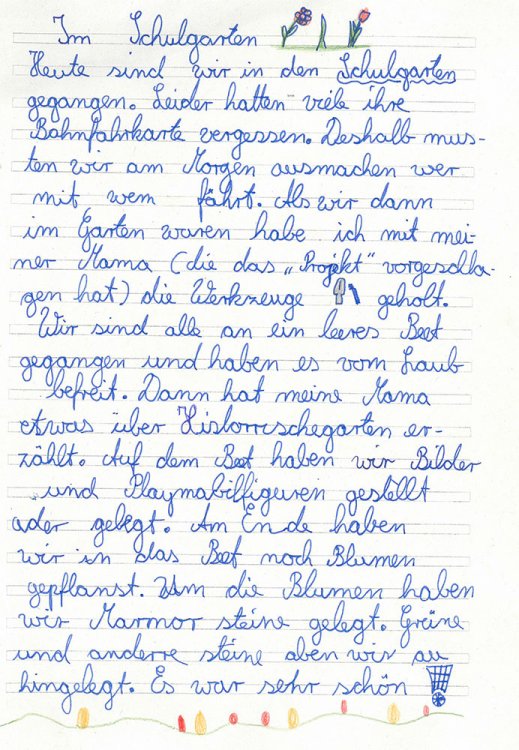 Im Schulgarten
Heute sind wir in den Schulgarten
gegangen. Leider hatten viele ihre
Bahnfahrkarte vergessen. Deshalb mus-
ten wir am Morgen ausmachen wer
mit wem fährt. Als wir dann
im Garten waren habe ich mit mei-
ner Mama (die das „Projekt“ vorgeschla-
gen hat) die Werkzeuge geholt.
Wir sind alle an ein leeres Beet
gegangen und haben es vom Laub
befreit. Dann hat meine Mama
etwas über Historrischegarten er-
zählt. Auf dem Beet haben wir Bilder
und Playmabilfiguren gestellt
oder gelegt. Am Ende haben
wir in das Beet noch Blumen
gepflanst. Um die Blumen haben
wir Marmor steine gelegt. Grüne
und anderre steine aben wir au
hingelegt. Es war sehr schön